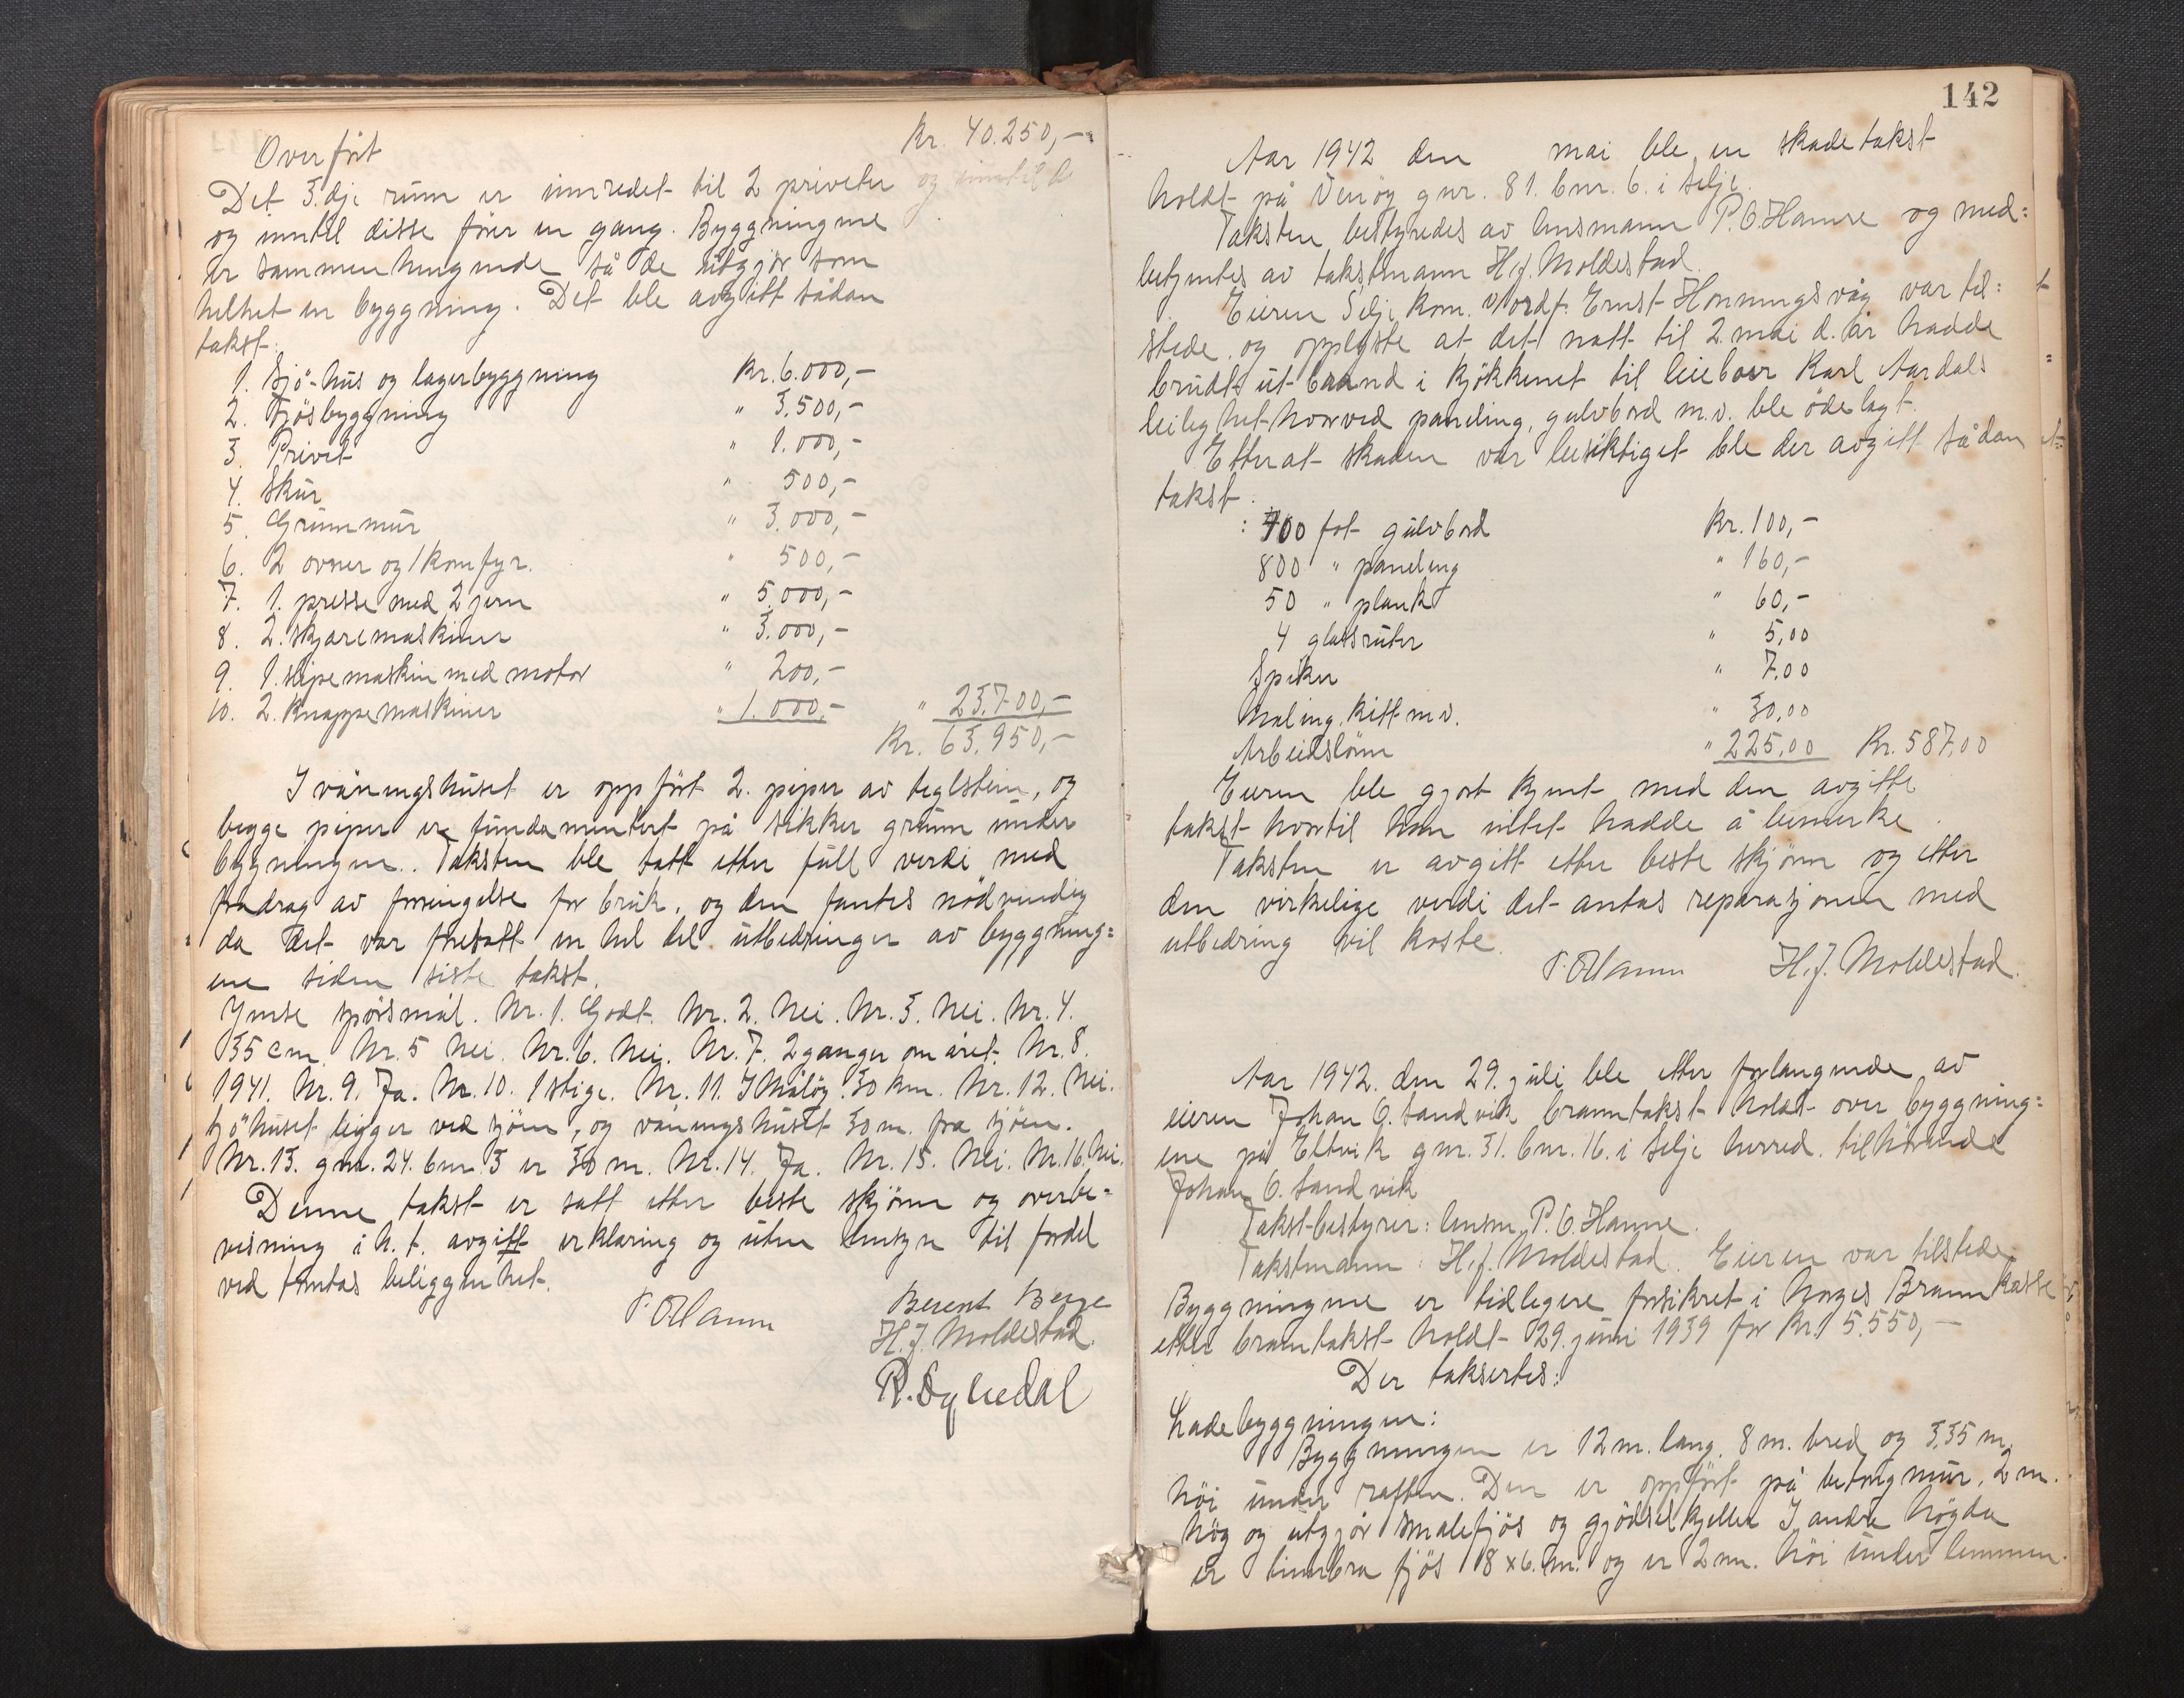 Overført Kr. 40.250,-
Det 3.dje rum er innredet til 2 priveter og inntil de
og inntil disse fører en gang. Byggningene
er sammenhengende så de utgjør som
helhet en byggning. Det ble avgitt sådan
takst:
1. Sjø-hus og lagerbyggning Kr. 6.000,-
2. Fjøsbyggning " 3.500,-
3. Privet " 1.000,-
4. Skur " 500,-
5. Grunnmur " 3.000,-
6. 2 ovner og 1 komfyr. " 500,-
7. 1. presse med 2 jern " 5.000,-
8. 2. skjæremaskiner " 3.000,-
9. 1. slipemaskin med motor " 200,-
10. 2. Knappemaskiner " 1.000,- " 23.700,-
Kr. 63.950,-
I våningshuset er oppført 2. piper av teglstein, og
begge piper er fundamentert på sikker grunn under
bygningen. Taksten ble tatt etter full verdi med
fradrag av forringelse for bruk, og den fantes nødvendig
da det var foretatt en hel del utbedringer av byggning=
ene siden siste takst.
Ymse spørsmål. Nr. 1. Godt. Nr. 2. Nei. Nr. 3. Nei. Nr. 4.
35 cm. Nr. 5 Nei. Nr. 6. Nei. Nr. 7. 2 ganger om året. Nr. 8.
1941. Nr. 9. Ja. Nr. 10. 1 stige. Nr. 11. I Måløy 30 km. Nr. 12. Nei.
Sjøhuset ligger ved sjøen, og våningshuset 30 m. fra sjøen.
Nr. 13. gnr. 24. bnr. 3 er 30 m. Nr. 14. Ja. Nr. 15. Nei. Nr. 16. Nei.
Denne takst er satt etter beste skjønn og overbe=
visning i h. t. avgitt erklæring og uten hensyn til fordel
ved tomtas beliggenhet.
P. O. Hamre Berent Berge
H. J. Moldestad.
R.
142
Aar 1942 den mai ble en skadetakst
holdt på Venøy gnr. 81. bnr. 6. i Selje.
Taksten bestyredes av lensmann P. O. Hamre og med=
betjentes av takstmann H. J. Moldestad.
Eieren Selje kom. v/ordf. Ernst Honningsvåg var til=
stede og opplyste at det natt til 2. mai d. år hadde
brudt ut brand i kjøkkenet til leieboer Karl Aardals
leilighet hvorved paneling, gulvbord m.v. ble ødelagt.
Etter at skaden var besiktiget ble der avgitt sådan
takst.
: 400 fot gulvbord Kr. 100,-
800 " paneling " 160,-
50 " plank " 60,-
4 glassruter " 5,00
Spiker " 7,00
Maling, kitt m.v. " 30,00
Arbeidslønn " 225,00 Kr. 587,00
Eieren ble gjort kjent med den avgitte
takst hvortil han intet hadde å bemerke.
Taksten er avgitt etter beste skjønn og etter
den virkelige verdi det antas reparasjonen med
utbedring vil koste.
P. O. Hamre H. J. Moldestad.
Aar 1942. den 29. juli ble etter forlangende av
eieren Johan O. Sandvik branntakst holdt over byggning=
ene på Eltvik gnr. 31. bnr. 16. i Selje herred. tilhørende
Johan O. Sandvik
Takst-bestyrer: lensm. P. O. Hamre.
Takstmann: H. J. Moldestad. Eieren var tilstede.
Byggningene er tidligere forsikret i Norges Brannkasse
etter branntakst holdt 29. juni 1939 for Kr. 5.550,-
Der taksertes:
Ladebyggningen:
Byggningen er 12 m. lang, 8 m. bred og 3,35 m.
høi under raften. Den er oppført på betongmur, 2 m.
høg og utgjør smalefjøs og gjødselkjeller I andre høgda
er timbra fjøs 8 x 6. m. og er 2 m. høi under lemmen.